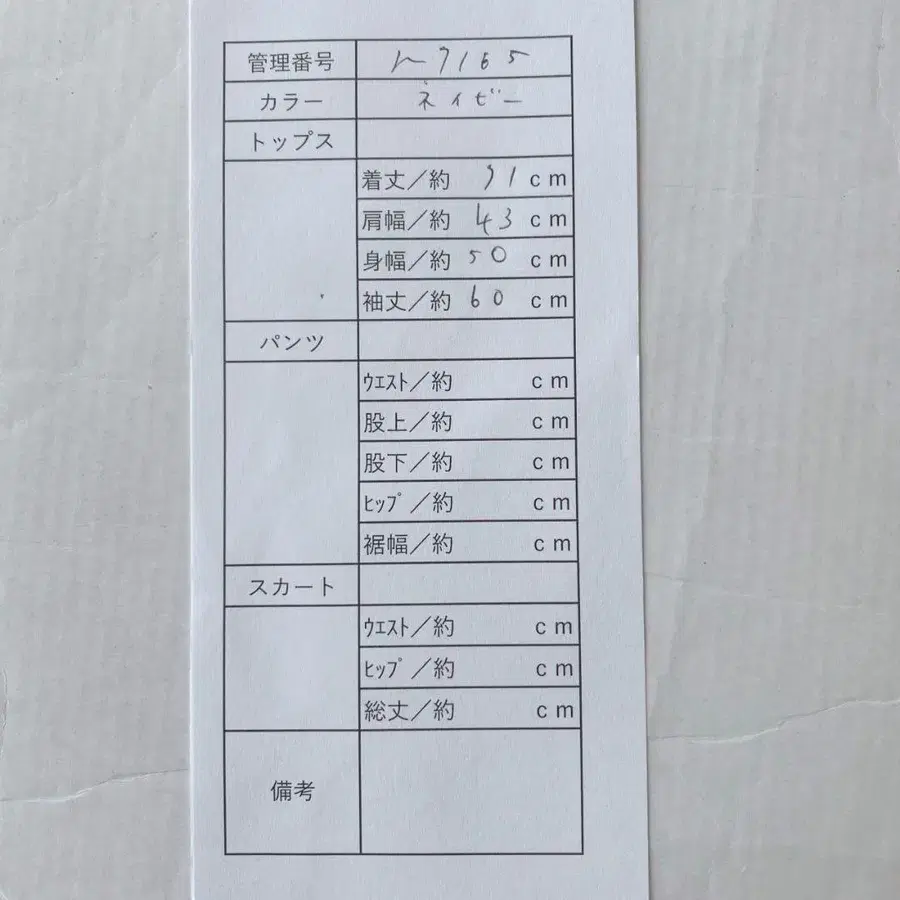 管理番号 h7165
カラー ネイビー
トップス
着丈／約 71 cm
肩幅／約 43 cm
身幅／約 50 cm
袖丈／約 60 cm
パンツ
ｳｴｽﾄ／約 cm
股上／約 cm
股下／約 cm
ﾋｯﾌﾟ／約 cm
裾幅／約 cm
スカート
ｳｴｽﾄ／約 cm
ﾋｯﾌﾟ／約 cm
総丈／約 cm
備考